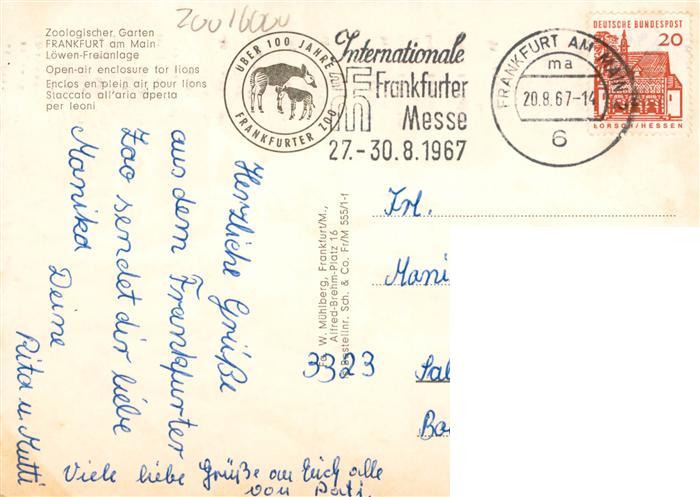 Zoo 16000
Zoologischer Garten
FRANKFURT am Main
Löwen-Freianlage
Open-air enclosure for lions
Enclos en plein air pour lions
Staccato all'aria aperta
per leoni
ÜBER 100 JAHRE
FRANKFURTER ZOO
Internationale
Frankfurter
Messe
27.-30.8.1967
FRANKFURT AM MAIN
ma
20.8.67-14
6
DEUTSCHE BUNDESPOST
20
LORSCH/HESSEN
Herzliche Grüße
aus dem Frankfurter
Zoo sendet dir liebe
Monika Deine
Rita u. Mutti
Viele liebe Grüße an Euch alle
von
W. Mühlberg, Frankfurt/M.,
Alfred-Brehm-Platz 16
Bestellnr. Sch. & Co. Fr/M 555/1-f
Frl.
Moni
3323 Sal
Ba